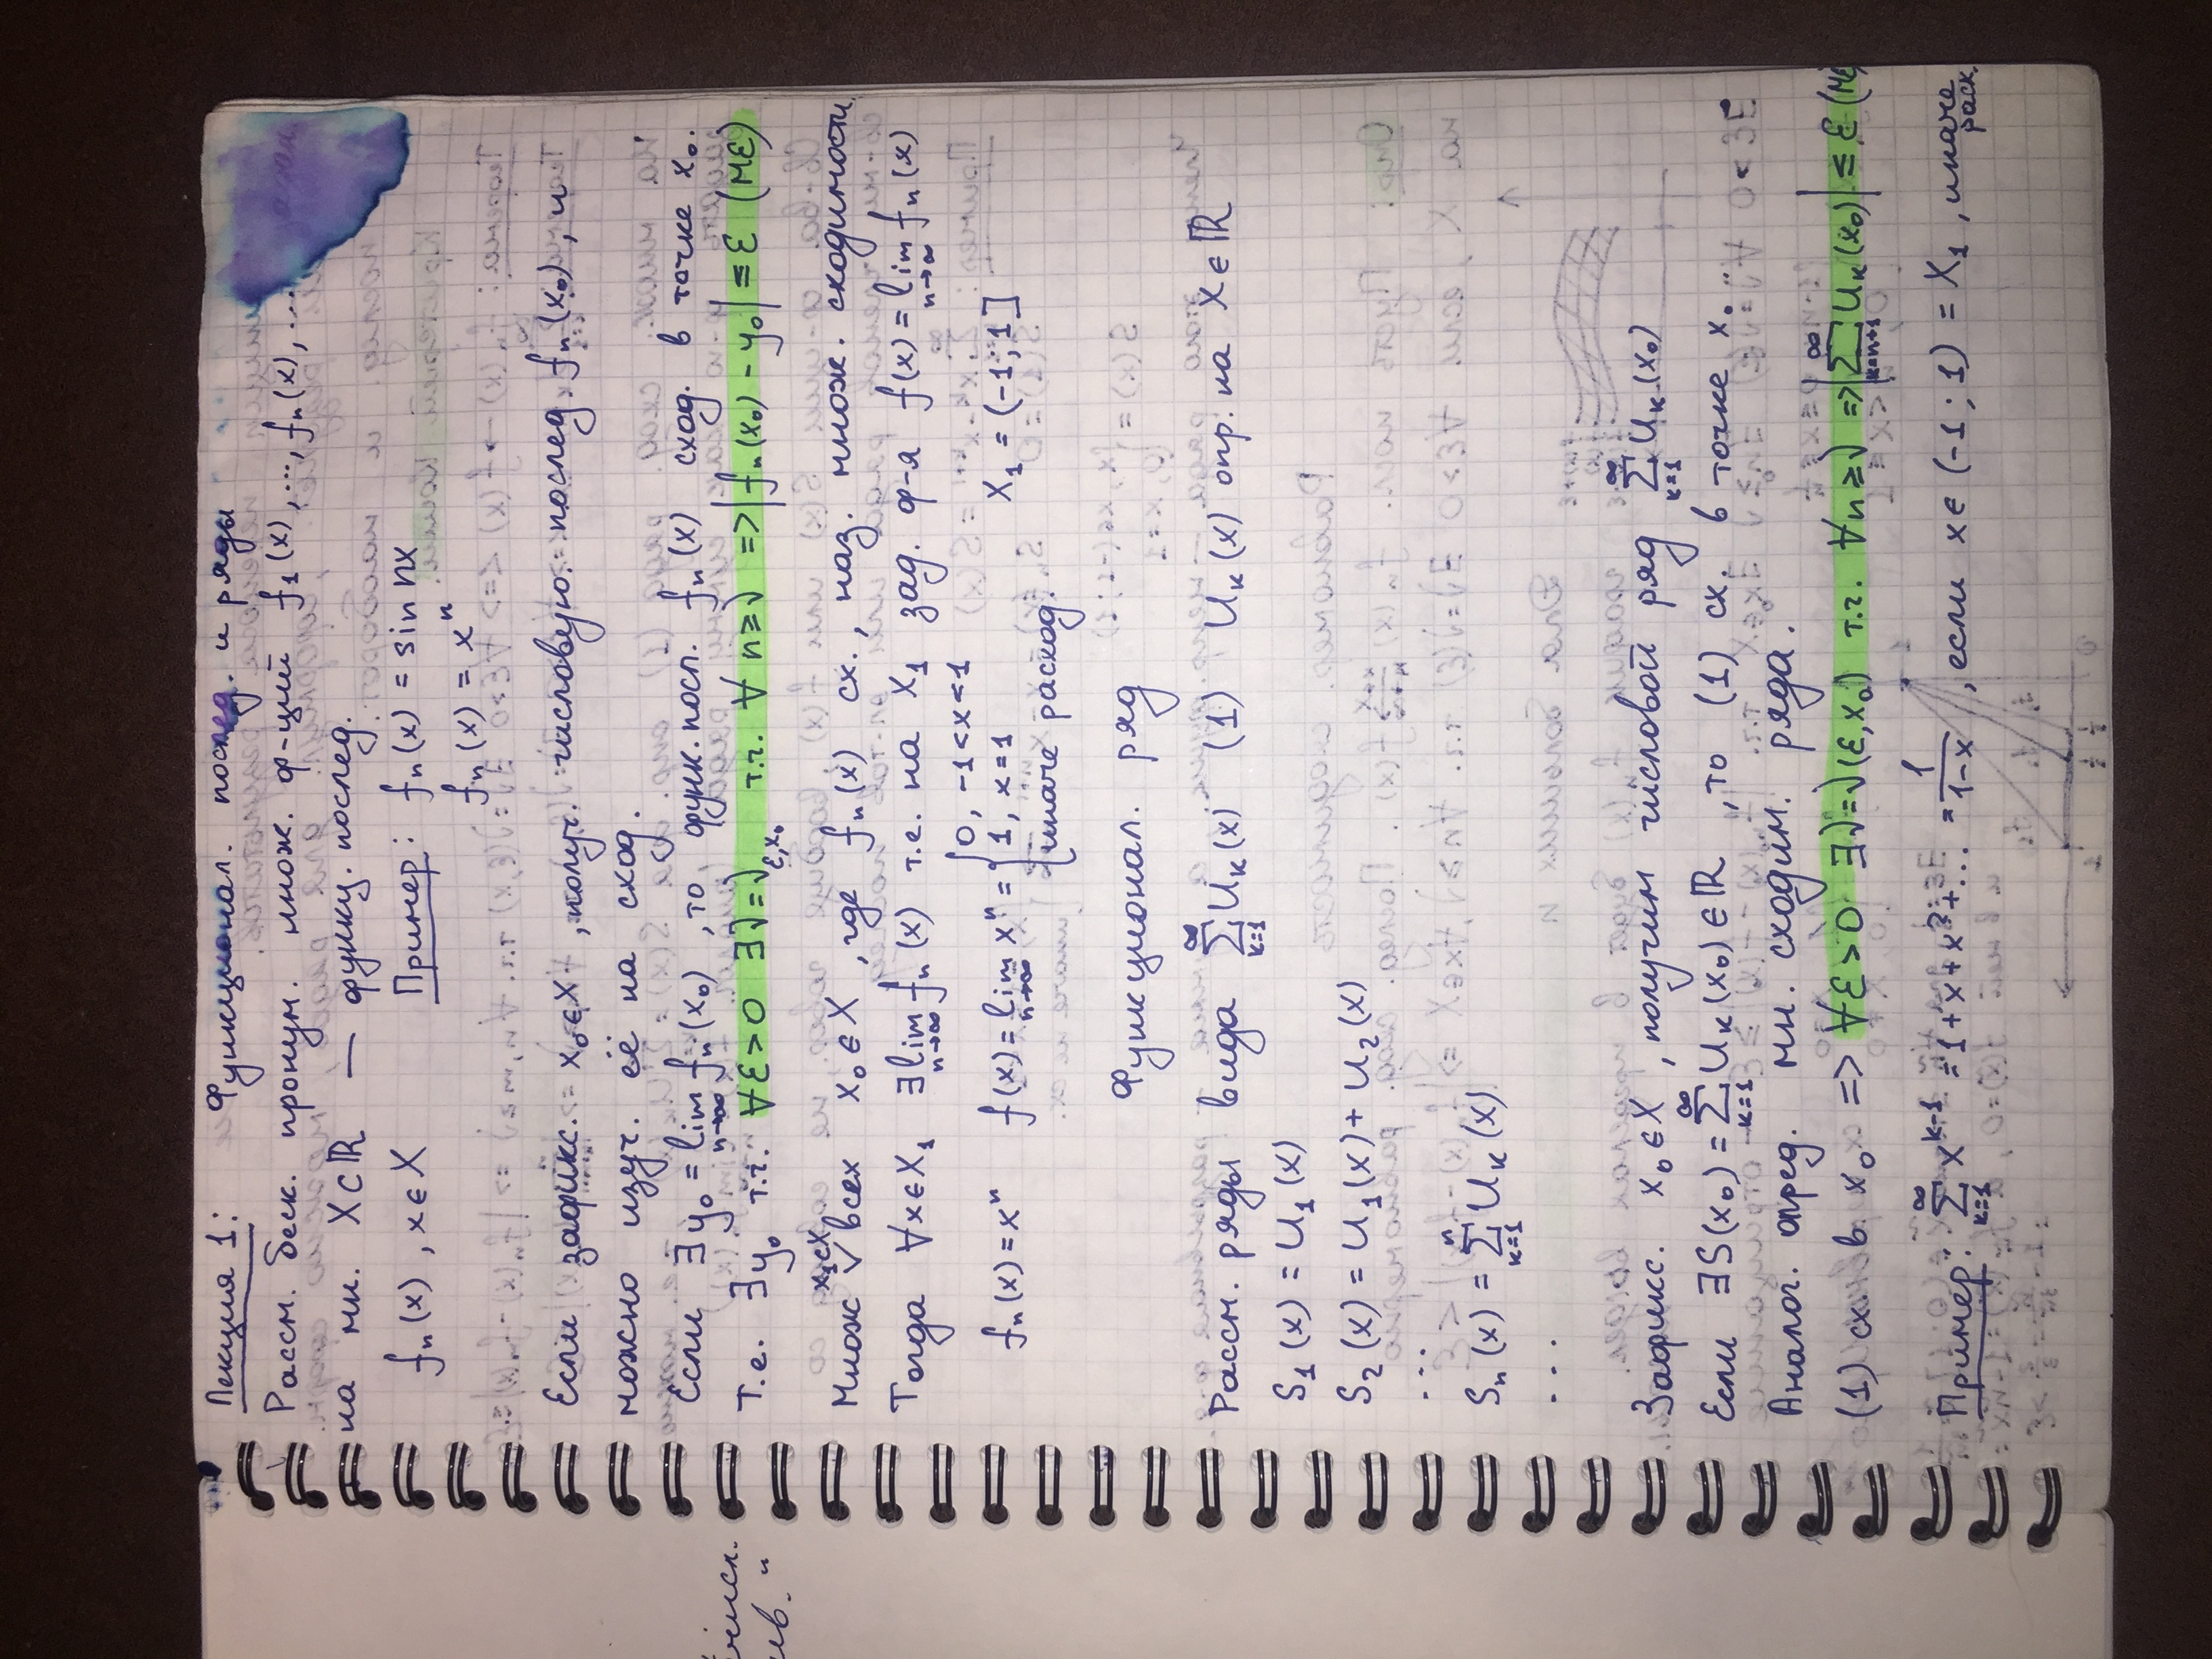 Лекция 1: Функционал. послед. и ряды
Рассм. беск. пронум. множ. ф-ций f₁(x),...,fₙ(x),...
на мн. X⊂ℝ — функц. послед.
fₙ(x), x∈X Пример: fₙ(x) = sin nx
fₙ(x) = xⁿ
Если зафикс. x₀∈X, получ. числовую. послед. fₙ(x₀), и
можно изуч. её на сход.
Если ∃y₀ = lim_{n→∞} fₙ(x₀), то функ. посл. fₙ(x) сход. в точке x₀.
Т.е. ∃y₀ т.ч. ∀ε>0 ∃ν=ν_{ε,x₀} т.ч. ∀n≥ν => |fₙ(x₀) - y₀| ≤ ε (Mε)
Множ X₁⊂X всех x₀∈X, где fₙ(x) сх., наз. множ. сходимости.
Тогда ∀x∈X₁ ∃lim_{n→∞} fₙ(x) т.е. на X₁ зад. ф-я f(x) = lim_{n→∞} fₙ(x)
fₙ(x) = xⁿ f(x) = lim_{n→∞} xⁿ = { 0, -1<x<1
1, x=1 X₁ = (-1; 1]
иначе расход.
Функционал. ряд
Рассм. ряды вида ∑_{k=1}^{∞} U_k(x) (1) U_k(x) опр. на X∈ℝ
S₁(x) = U₁(x)
S₂(x) = U₁(x) + U₂(x)
...
Sₙ(x) = ∑_{k=1}^{n} U_k(x)
...
Зафикс. x₀∈X, получим числовой ряд ∑_{k=1}^{∞} U_k(x₀)
Если ∃S(x₀) = ∑_{k=1}^{∞} U_k(x₀) ∈ ℝ, то (1) сх. в точке x₀.
Аналог. опред. мн. сходим. ряда.
(1) сх. в x₀ => ∀ε>0 ∃ν=ν(ε,x₀) т.ч. ∀n≥ν => |∑_{k=n+1}^{∞} U_k(x₀)| ≤ ε (Mε)
Пример: ∑_{k=1}^{∞} x^{k-1} = 1+x+x²+... = 1/(1-x), если x∈(-1; 1) = X₁, иначе
расх.